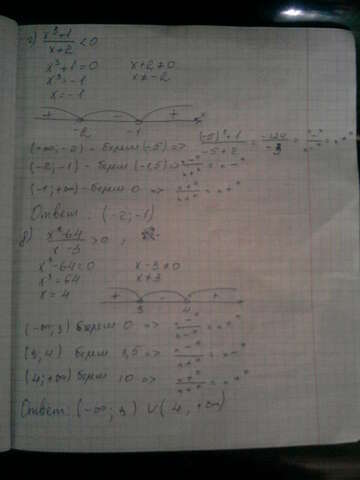 г) x³+1 / x+2 < 0
x³+1=0 x+2≠0
x³=-1 x≠-2
x=-1
+ - +
-2 -1 x
(-∞;-2) - берем (-5) => (-5)³+1 / -5+2 = -124 / -3 = "-" / "-" = "+"
(-2;-1) - берем (-1,5) => "-" / "+" = "-"
(-1;+∞) - берем 0 => "+" / "+" = "+"
Ответ: (-2;-1)
x³-64 / x-3 > 0 ;
x³-64=0 x-3≠0
x³=64 x≠3
x=4
+ - +
3 4
(-∞;3) берем 0 => "-" / "-" = "+"
(3;4) берем 3,5 => "-" / "+" = "-"
(4;+∞) берем 10 => "+" / "+" = "+"
Ответ: (-∞;3) ∪ (4;+∞)